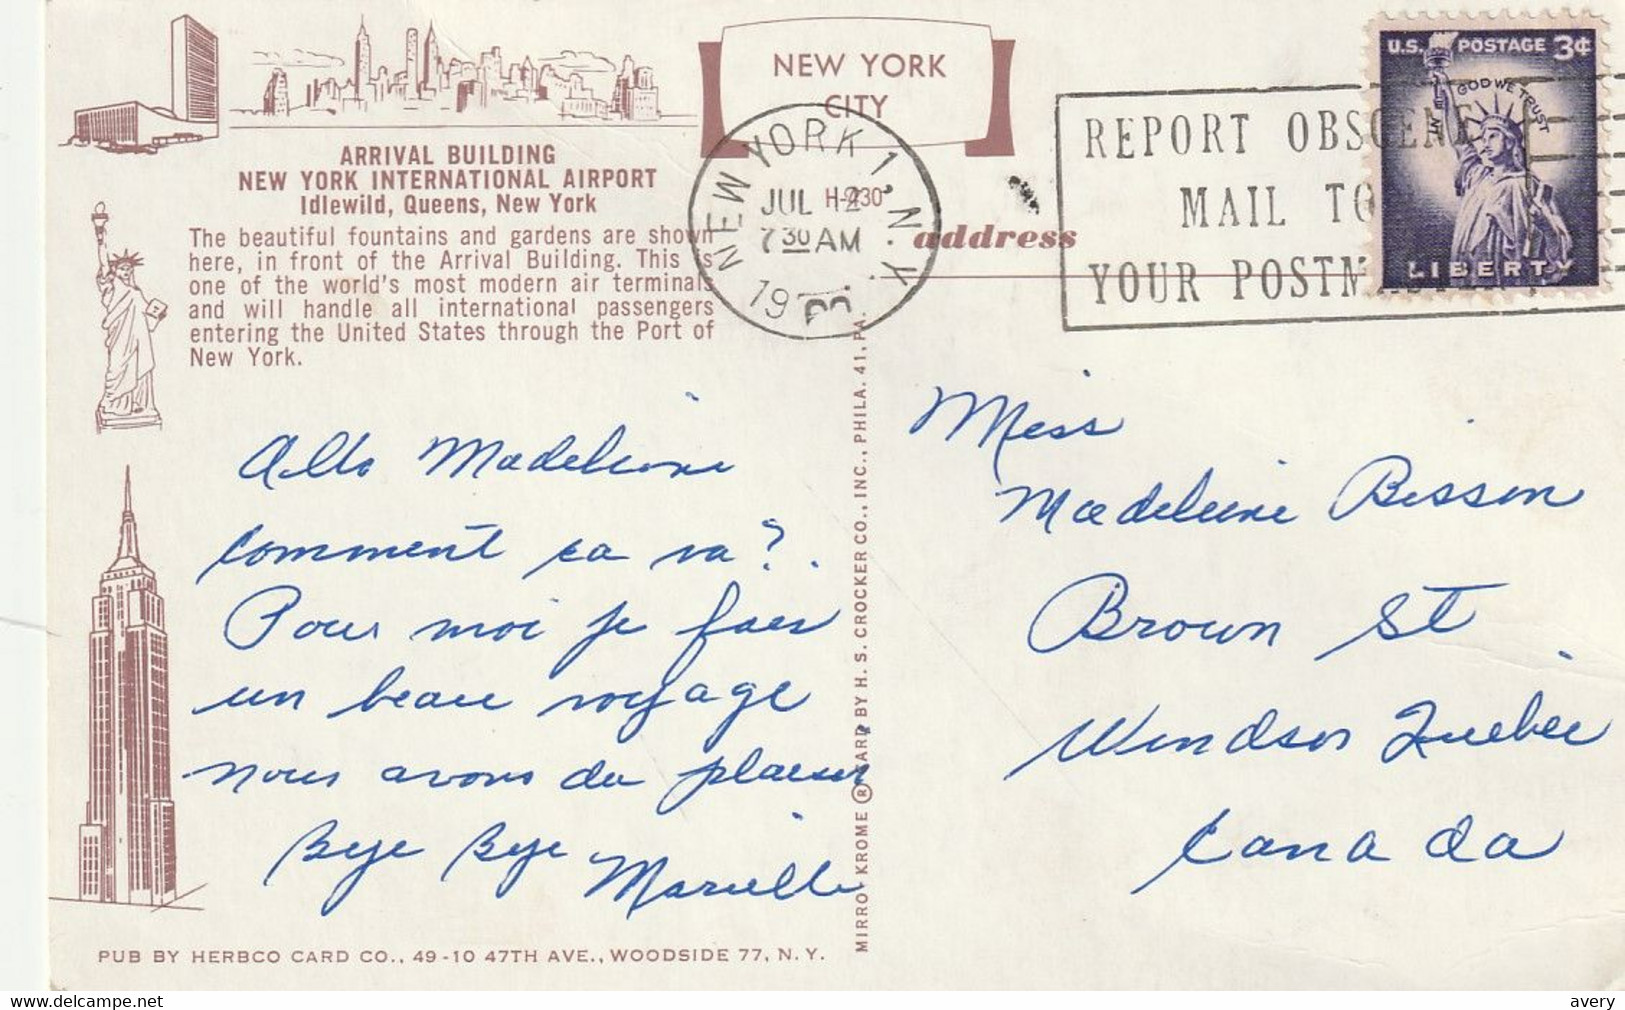 NEW YORK
CITY
ARRIVAL BUILDING
NEW YORK INTERNATIONAL AIRPORT
Idlewild, Queens, New York
The beautiful fountains and gardens are shown
here, in front of the Arrival Building. This is
one of the world's most modern air terminals
and will handle all international passengers
entering the United States through the Port of
New York.
NEW YORK 1, N.Y.
JUL 2
7 30 AM
19
H-230
address
REPORT OBSCENE
MAIL TO
YOUR POSTM
U.S. POSTAGE 3¢
IN GOD WE TRUST
LIBERTY
Allo Madeleine
comment ca va?
Pour moi je fais
un beau voyage
nous avons du plaisir
Bye Bye Marielle
Miss
Madeleine Bisson
Brown St
Windsor Quebec
Canada
MIRRO KROME ® CARD BY H. S. CROCKER CO., INC., PHILA. 41, PA.
PUB BY HERBCO CARD CO., 49-10 47TH AVE., WOODSIDE 77, N. Y.
www.delcampe.net
avery